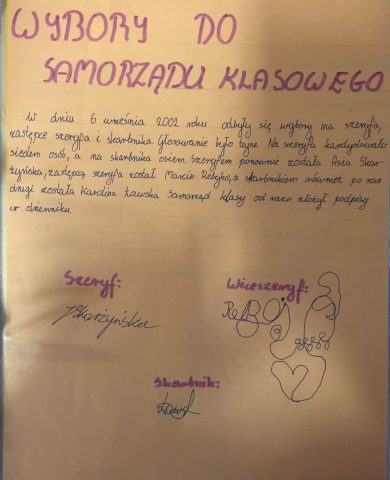 WYBORY DO
SAMORZĄDU KLASOWEGO
W dniu 6 września 2002 roku odbyły się wybory na szeryfa,
zastępcę szeryfa i skarbnika. Głosowanie było tajne. Na szeryfa kandydowało
siedem osób, a na skarbnika osiem. Szeryfem ponownie została Asia Skar-
żyńska, zastępcą szeryfa został Marcin Rebejko, a skarbnikiem również po raz
drugi została Karolina Ławska. Samorząd klasy od razu złożył podpisy
w dzienniku.
Szeryf: Wiceszeryf:
JSkarżyńska
Skarbnik: